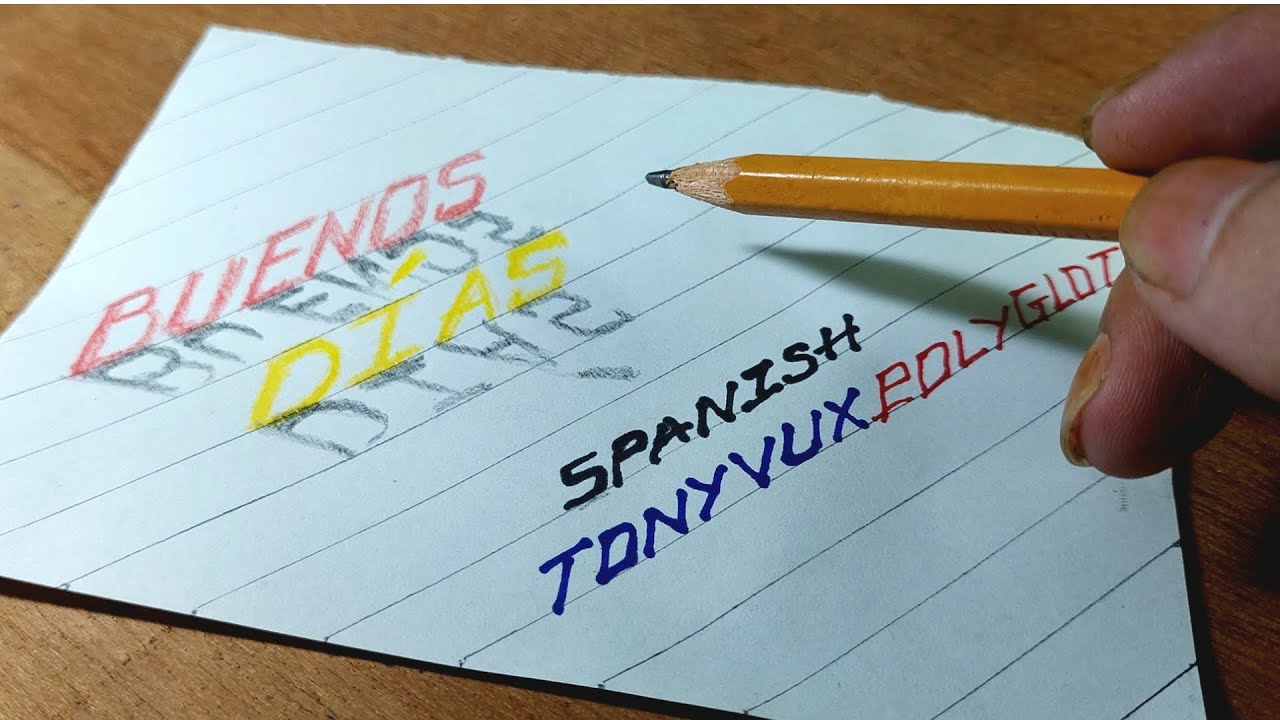 BUENOS
DÍAS
SPANISH
TONYVUXPOLYGLOT